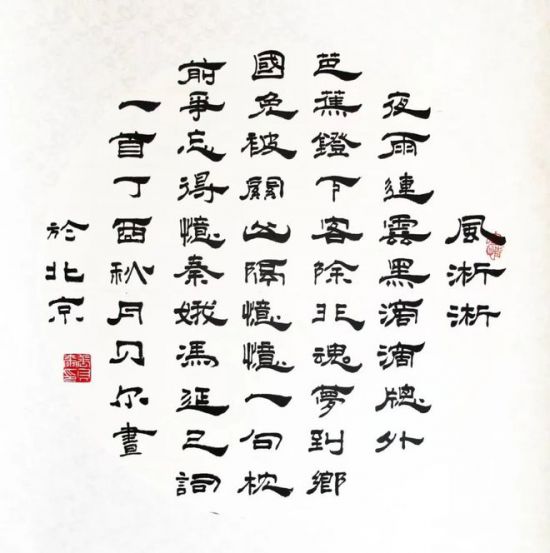 風淅淅
夜雨連雲黑滴滴牕外
芭蕉鐙下客除非魂夢到鄉
國免被關山隔憶憶一句枕
前爭忘得憶秦娥馮延巳詞
一首丁酉秋月贝尔書
於北京